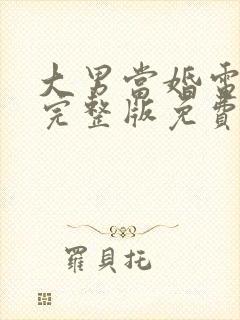 大男當婚電
完整版免費
羅貝托